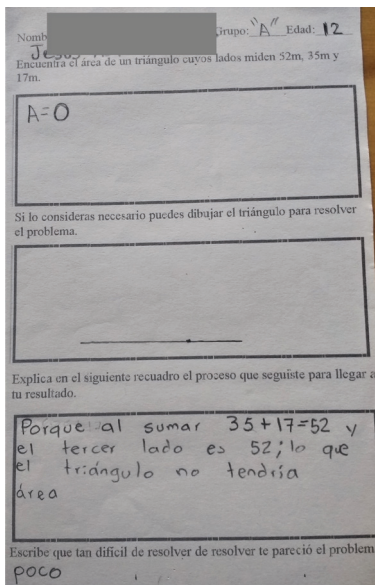 Nomb Grupo: "A" Edad: 12
Jesús
Encuentra el área de un triángulo cuyos lados miden 52m, 35m y
17m.
A=0
Si lo consideras necesario puedes dibujar el triángulo para resolver
el problema.
Explica en el siguiente recuadro el proceso que seguiste para llegar a
tu resultado.
Porque al sumar 35+17=52 y
el tercer lado es 52; lo que
el triángulo no tendría
área
Escribe que tan difícil de resolver de resolver te pareció el problem
poco